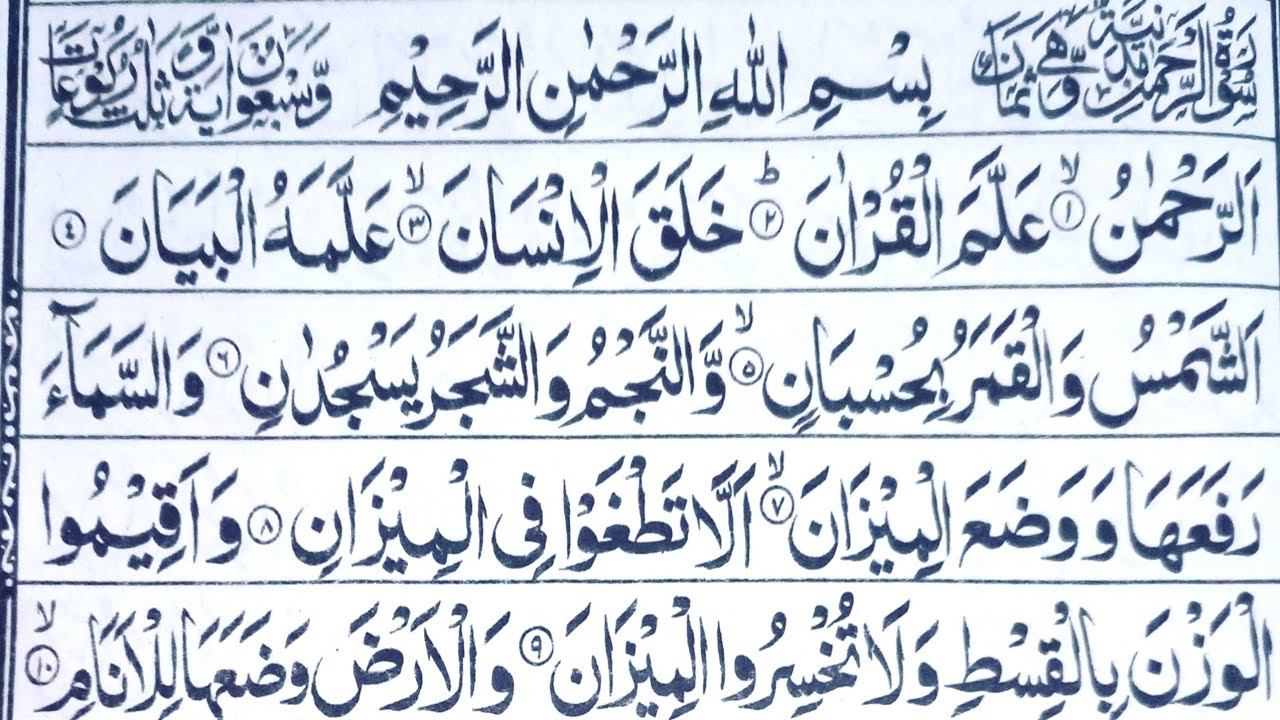 سُوْرَةُ الرَّحْمٰنِ مَدَنِيَّةٌ وَّهِيَ ثَمَانٌ بِسْمِ اللّٰهِ الرَّحْمٰنِ الرَّحِيْمِ وَّسَبْعُوْنَ اٰيَةً وَّثَلٰثُ رُكُوْعَاتٍ
اَلرَّحْمٰنُ ۙ﴿۱﴾ عَلَّمَ الْقُرْاٰنَ ؕ﴿۲﴾ خَلَقَ الْاِنْسَانَ ۙ﴿۳﴾ عَلَّمَهُ الْبَيَانَ ﴿۴﴾
اَلشَّمْسُ وَالْقَمَرُ بِحُسْبَانٍ ۙ﴿۵﴾ وَّالنَّجْمُ وَالشَّجَرُ يَسْجُدٰنِ ﴿۶﴾ وَالسَّمَآءَ
رَفَعَهَا وَوَضَعَ الْمِيْزَانَ ۙ﴿۷﴾ اَلَّا تَطْغَوْا فِى الْمِيْزَانِ ﴿۸﴾ وَاَقِيْمُوا
الْوَزْنَ بِالْقِسْطِ وَلَا تُخْسِرُوا الْمِيْزَانَ ﴿۹﴾ وَالْاَرْضَ وَضَعَهَا لِلْاَنَامِ ۙ﴿۱۰﴾